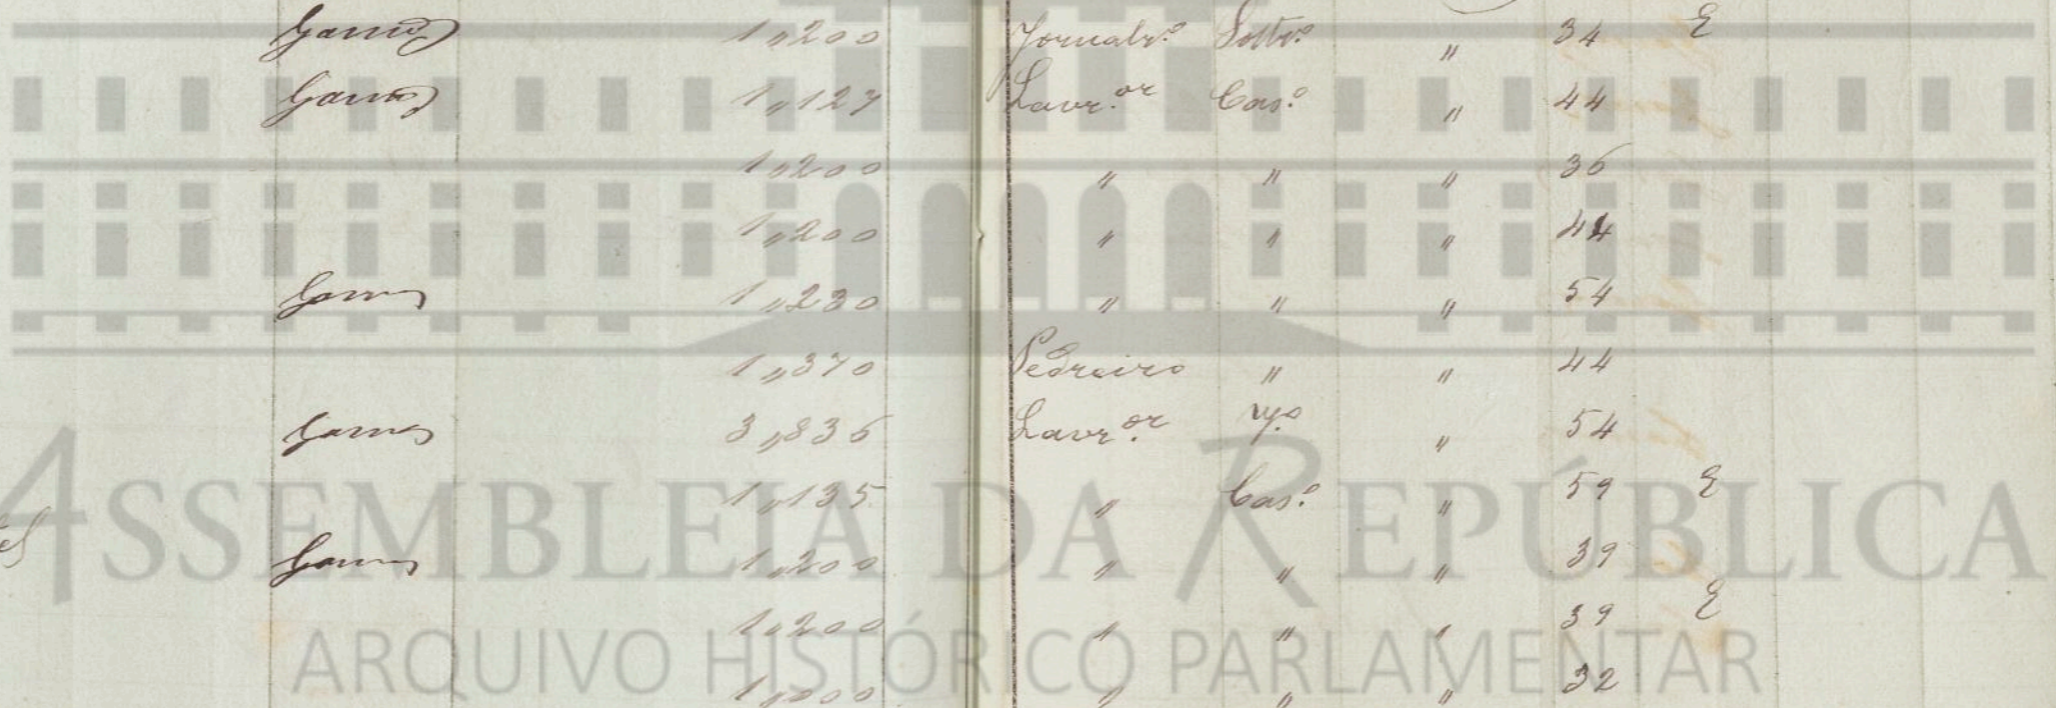 1,,200 Jornalr.º Soltr.º " 34 E
1,,127 Lavr.or Cas.º " 44
1,,200 " " " 36
1,,200 " " " 44
1,,230 " " " 54
1,,370 Pedreiro " " 44
3,,836 Lavr.or " 54
1,,135 " Cas.º " 59 E
1,,200 " " " 39
1,,200 " " " 39 E
" " " 32
ASSEMBLEIA DA REPÚBLICA
ARQUIVO HISTÓRICO PARLAMENTAR